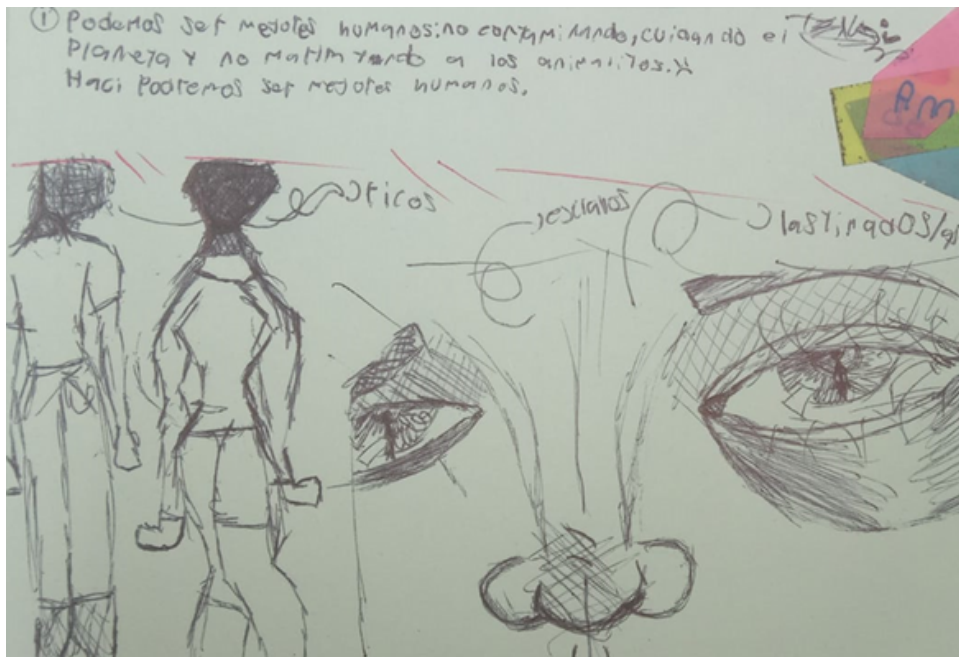 ① Podemos ser mejores humanos: no contaminando, cuidando el
Planeta y no maltratando a los animalitos. Y
Haci Podremos ser mejores humanos.
esclavos
lastimados/as